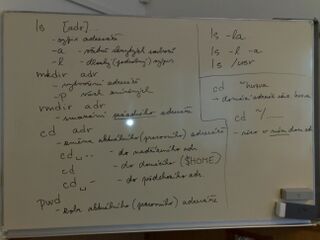 ls [adr]
- výpis adresáře
- -a - včetně skrytých souborů
- -l - dlouhý (podrobný) výpis
mkdir adr
- vytvoření adresáře
- -p
rmdir adr
- smazání prázdného adresáře
cd adr
- změna aktuálního (pracovního) adresáře
cd␣.. - do nadřazeného adr.
cd - do domácího ($HOME)
cd␣- - do předchozího adr.
pwd
- aktuálního (pracovního) adresáře
ls -la
ls -l -a
ls /usr
cd ~
→ domácí adresář
cd ~/